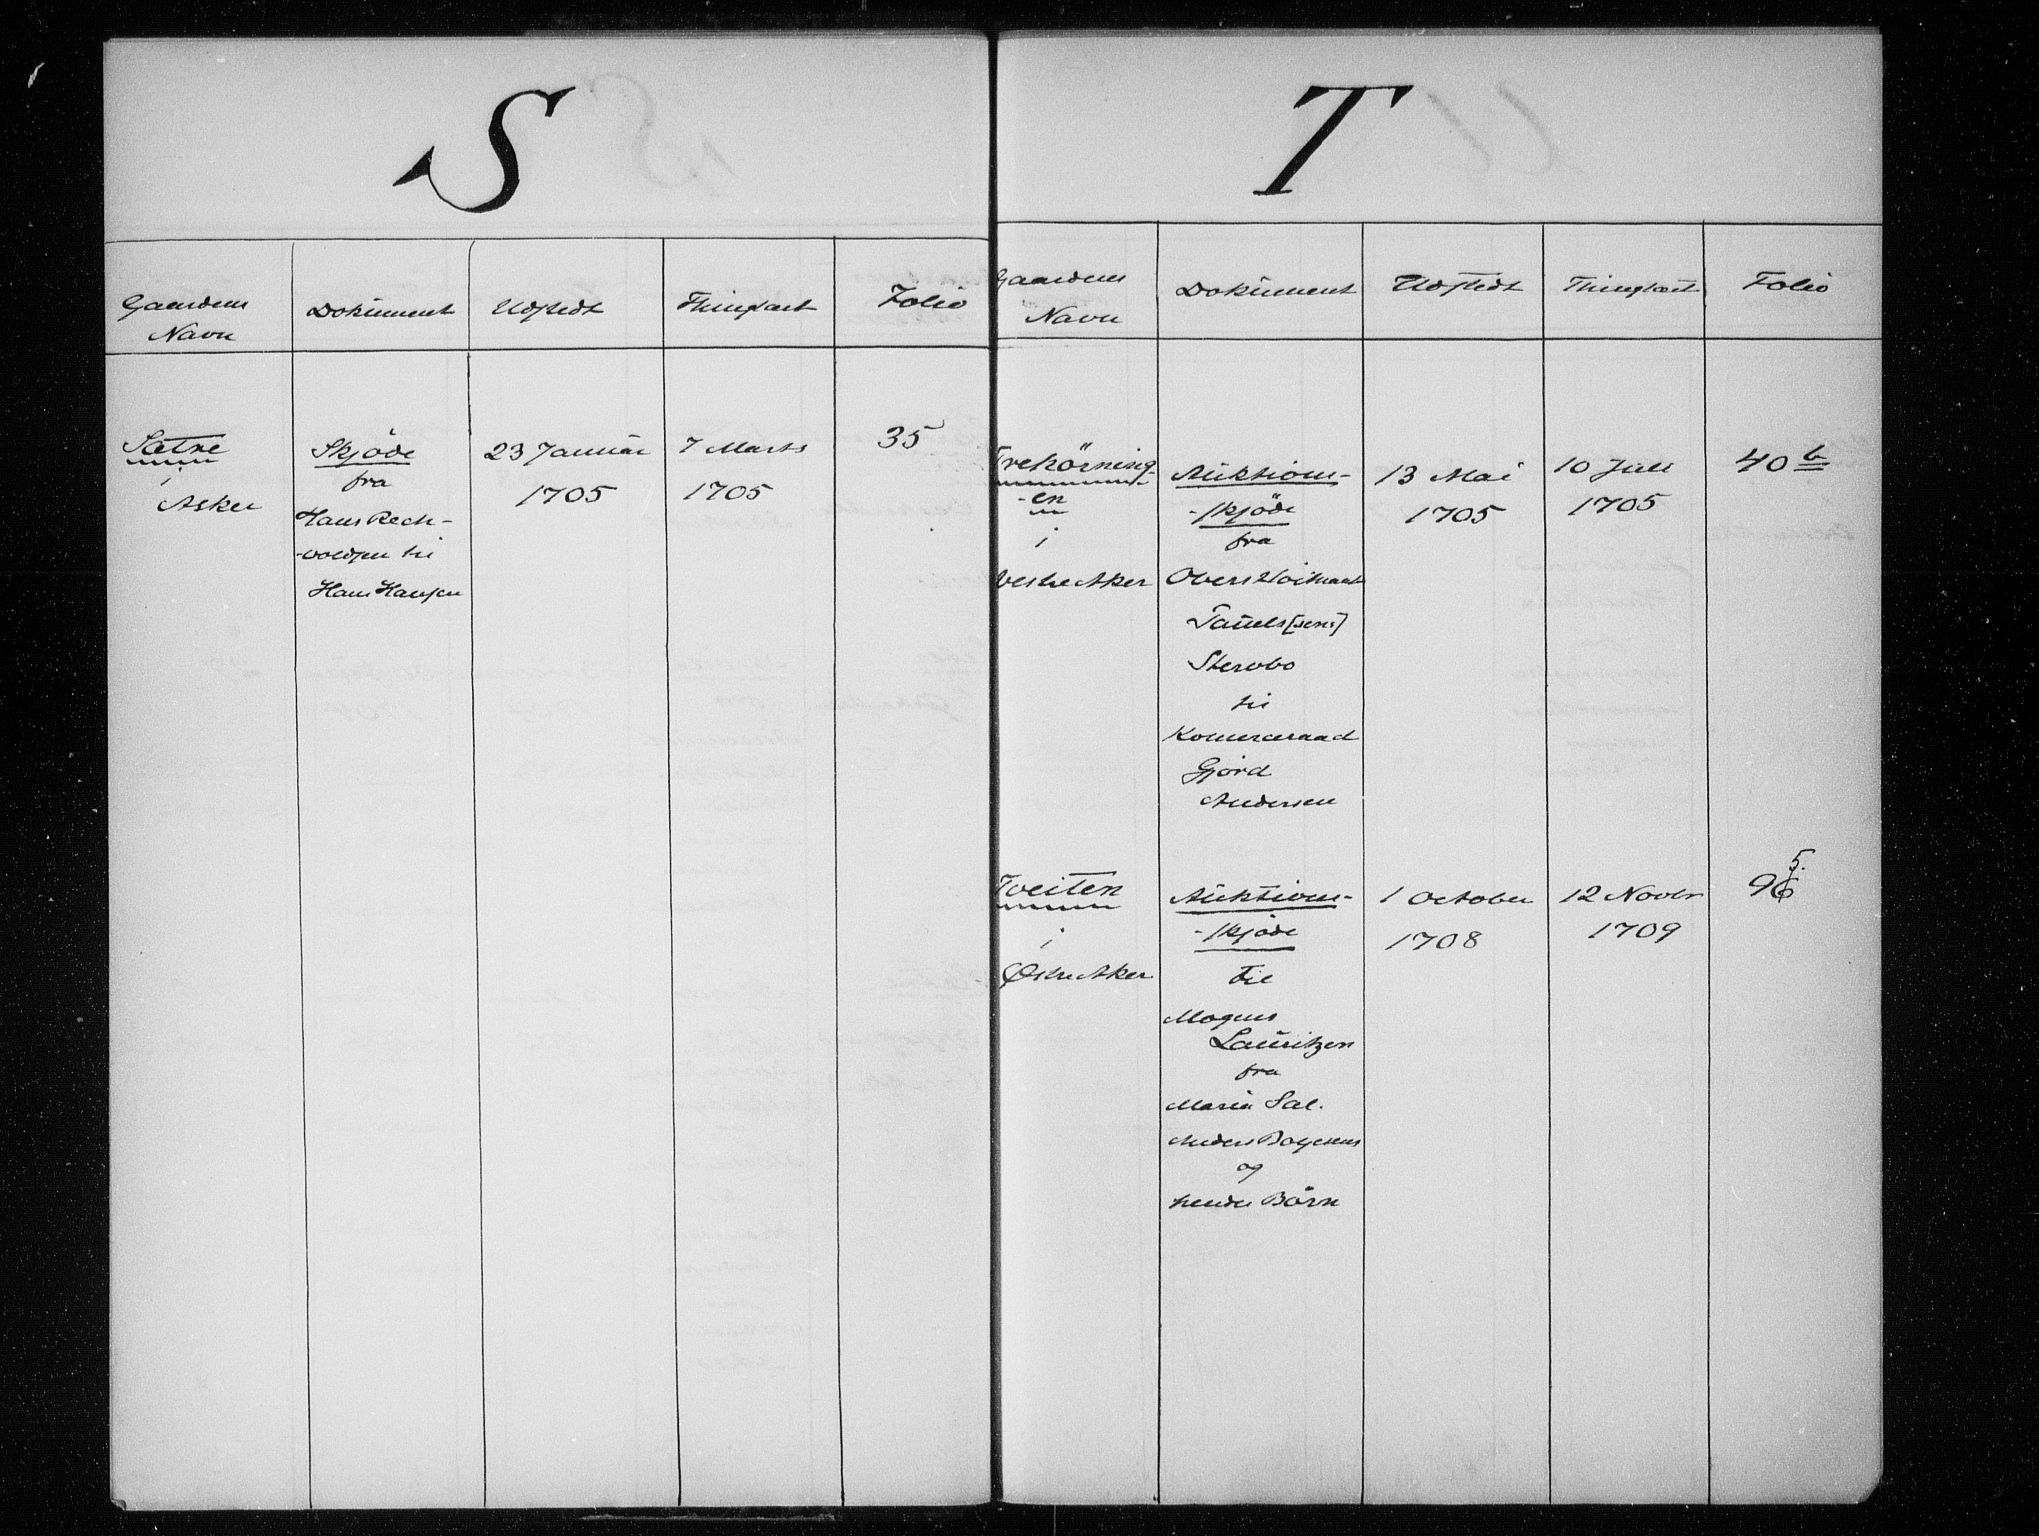 S
Gaardens
Navn
Dokument
Udstedt
Thinglæst
Folio
Sætre
i
Asker
Skjöde
fra
Hans Rech-
-voldsen til
Hans Hansen
23 Januar
1705
7 Marts
1705
35
T
Gaardens
Navn
Dokument
Udstedt
Thinglæst
Folio
Trekörning-
-en
i
Vestre Aker
Auktions-
-skjöde
fra
Oberstløitnant
Tauels[sens]
Stervbo
til
Komerceraad
Gjord
Andersen
13 Mai
1705
10 Juli
1705
40 b
Tveiten
i
Østre Aker
Auktions-
-skjöde
til
Mogens
Lauritzen
fra
Maria Sal.
Anders Boyesens
og
hendes Börn
1 October
1708
12 Novbr
1709
5.
96